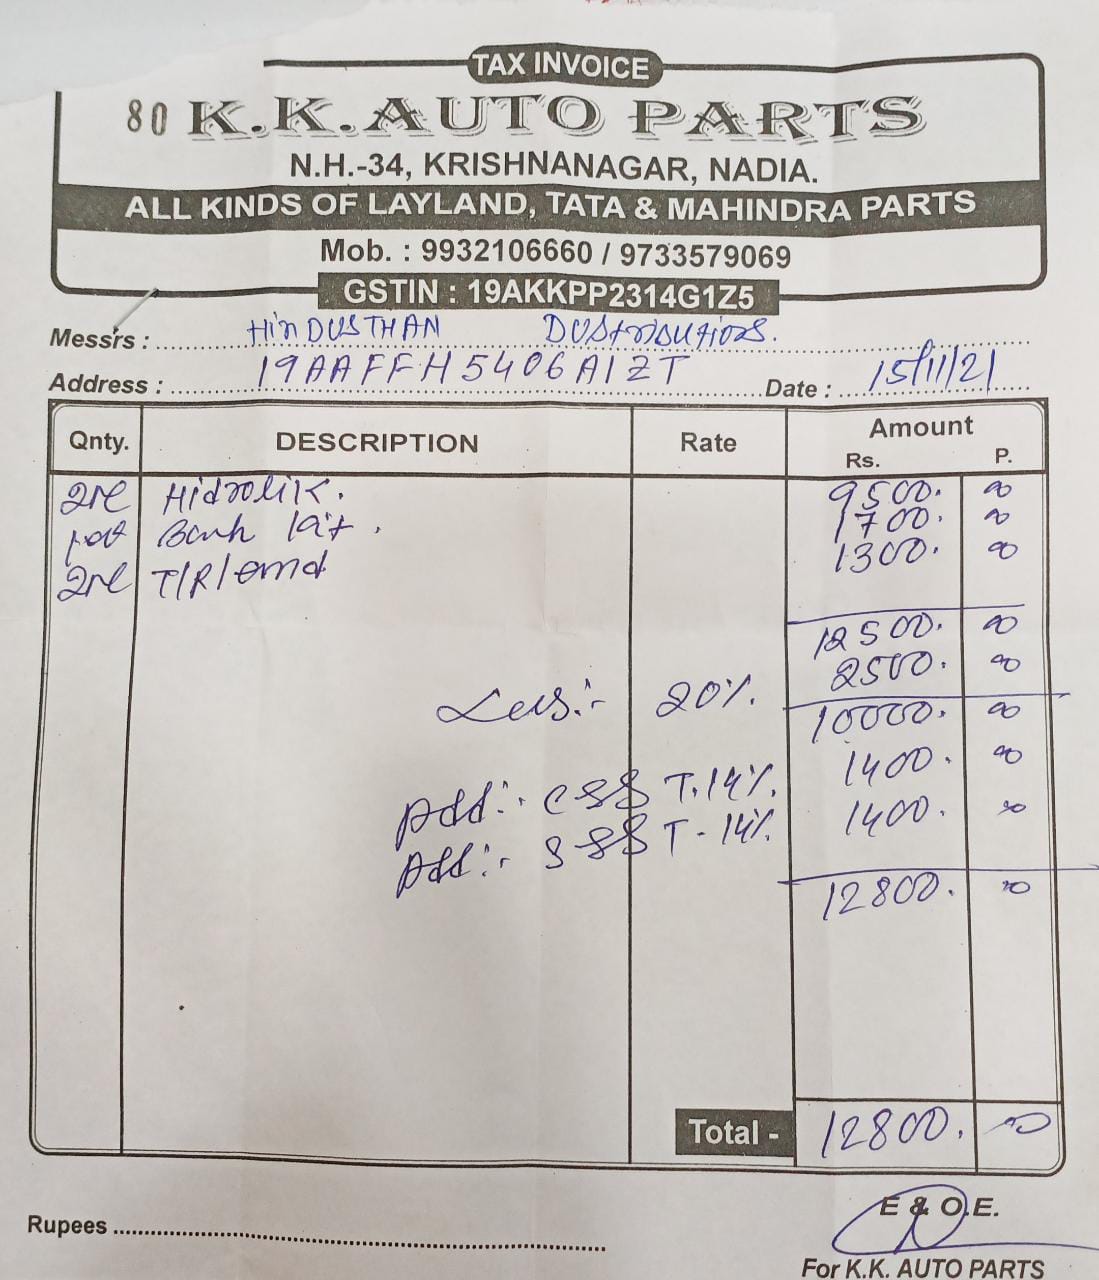 TAX INVOICE
80 K.K. AUTO PARTS
N.H.-34, KRISHNANAGAR, NADIA.
ALL KINDS OF LAYLAND, TATA & MAHINDRA PARTS
Mob. : 9932106660 / 9733579069
GSTIN : 19AKKPP2314G1Z5
Messrs : HINDUSTHAN
Address : 19AAFFH5406A1ZT Date : 15/11/21
Qnty. DESCRIPTION Rate Amount
Rs. P.
Hidrolik. 9500. 00
1700. 00
T/R/ 1300. 00
12500. 00
2500. 00
Less:- 20%.
10000. 00
Add:- CGST. 14% 1400. 00
Add:- SGST - 14% 1400. 00
12800. 00
Total - 12800. 00
E & O.E.
Rupees
For K.K. AUTO PARTS